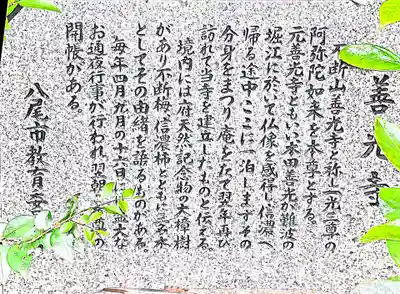 善光寺
不断山善光寺と称し一光三尊の
阿弥陀如来を本尊とする。
元善光寺ともいい本田善光が難波の
堀江において仏像を感得し信濃へ
帰る途中ここに一泊しますその
分身をまつり庵をたて翌年再び
訪れて当寺を建立したものと伝える。
境内には府天然記念物の大樟樹
があり不断梅、信濃柿とともに三名木
としてその由緒を語るものがある。
毎年四月九月の十六日に 盛大な
お通夜行事が行われ翌朝 尊の
開帳がある。
八尾市教育委